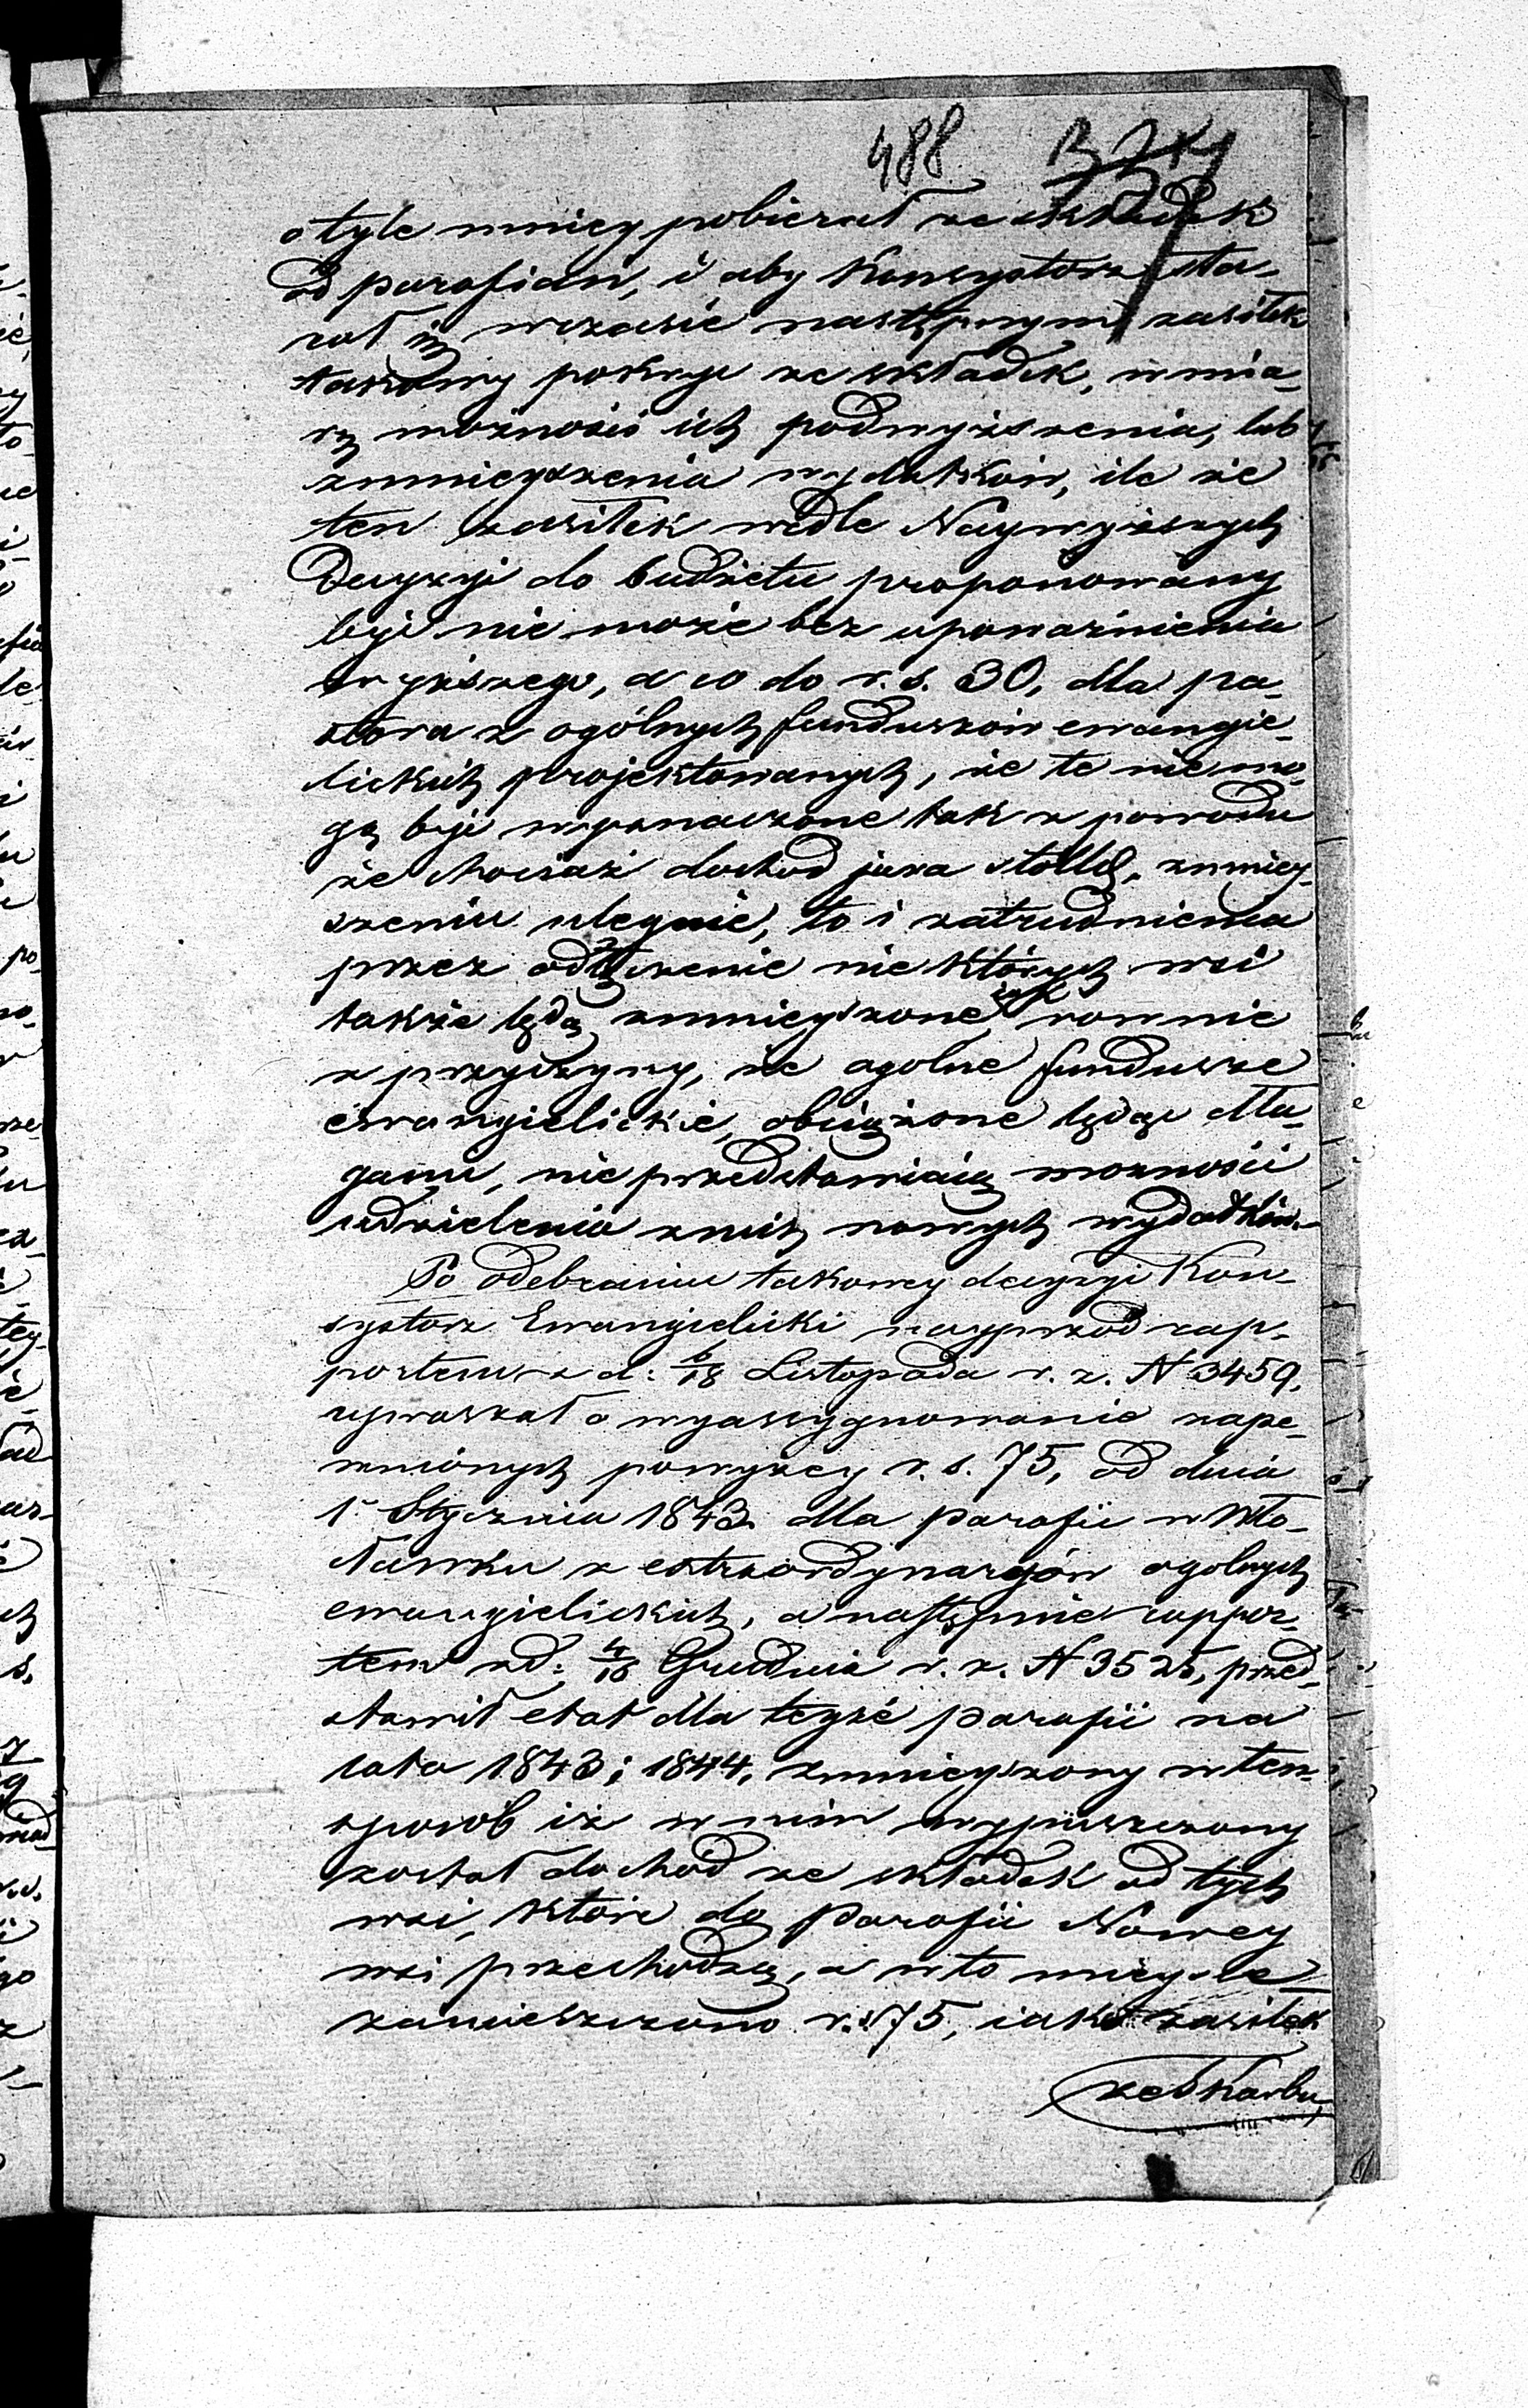 488
o tyle mniey pobierał ze składek
od parafian, i aby Konsystorz sta-
rał się wczasie następnym zasiłek
takowy pokryć ze składek, w mia-
rę możności ich podwyższenia, lub
zmnieyszenia wydatków, ile że
ten zasiłek wedle Naywyższych
Decyzyi do budżetu proponowany
być nie może bez upoważnienia
wyższego, a co do r. s. 30, dla pa-
stora z ogólnych funduszów ewangie-
lickich projektowanych, że te nie mo-
gą być wyznaczone tak z powodu
że chociaż dochód jura stollæ, zmniey-
szeniu ulegnie, to i zatrudnienia
przez odłączenie nie których wsi
także będą zmnieyszone iak rownie
z przyczyny, że ogolne fundusze
ewangielickie, obciążone będąc dłu-
gami, nie przedstawiaią mozności
udzielenia z nich nowych wydatków.
Po odebraniu takowey decyzyi Kon-
systorz Ewangielicki nayprzód rap-
portem z d: 6/18 Listopada r. z. N 3459,
upraszał o wyassygnowanie zape-
wnionych powyzey r. s. 75, od dnia
1 Stycznia 1843 dla parafii w Wło-
cławku z extraordynaryów ogolnych
ewangielickich, a następnie rappor-
tem z d: 4/16 Grudnia r. z. N 3525, przed-
stawił etat dla teyże parafii na
lata 1843 i 1844, zmnieyszony w ten
sposób iż w nim wypuszczony
został dochód ze składek od tych
wsi, które do parafii Nowey
wsi przechodzą, a w to mieysce
zamieszczono r. s. 75, iako zasiłek
ze Skarbu